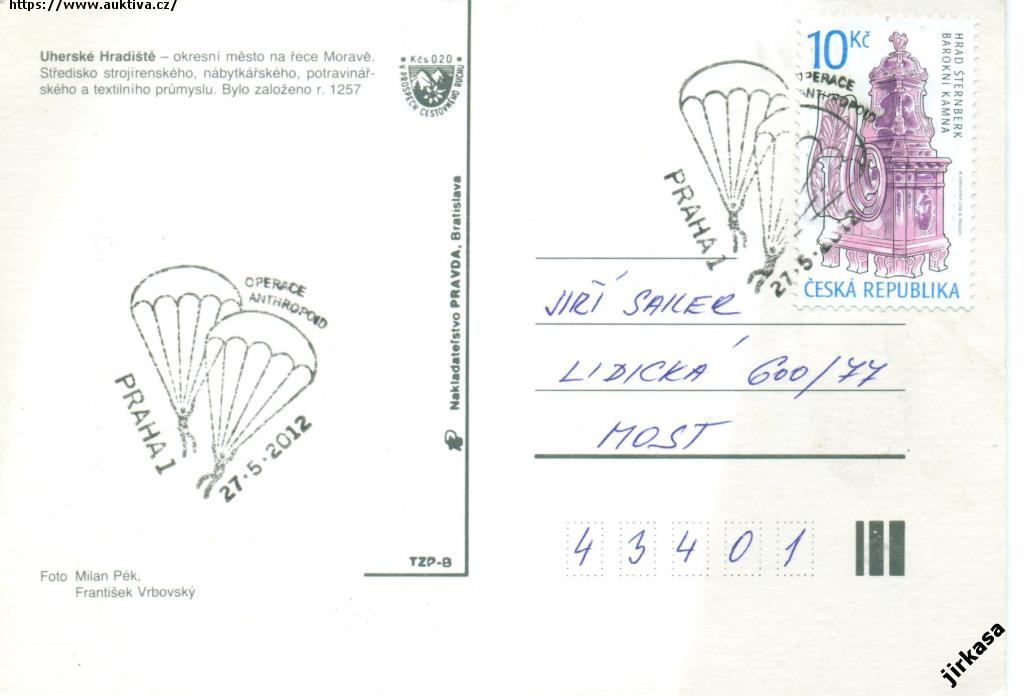 https://www.auktiva.cz/
Uherské Hradiště – okresní město na řece Moravě.
Středisko strojírenského, nábytkářského, potravinář-
ského a textilního průmyslu. Bylo založeno r. 1257
Kčs 0.20
V PROSPĚCH CESTOVNÉHO RUCHU
Nakladateľstvo PRAVDA, Bratislava
OPERACE
ANTHROPOID
PRAHA 1
27.5.2012
TZP-B
Foto Milan Pék,
František Vrbovský
10 Kč
HRAD ŠTERNBERK
BAROKNÍ KAMNA
ČESKÁ REPUBLIKA
OPERACE
ANTHROPOID
PRAHA 1
27.5.2012
JIŘÍ SAILER
LIDICKÁ 600/77
MOST
4 3 4 0 1
jirkasa